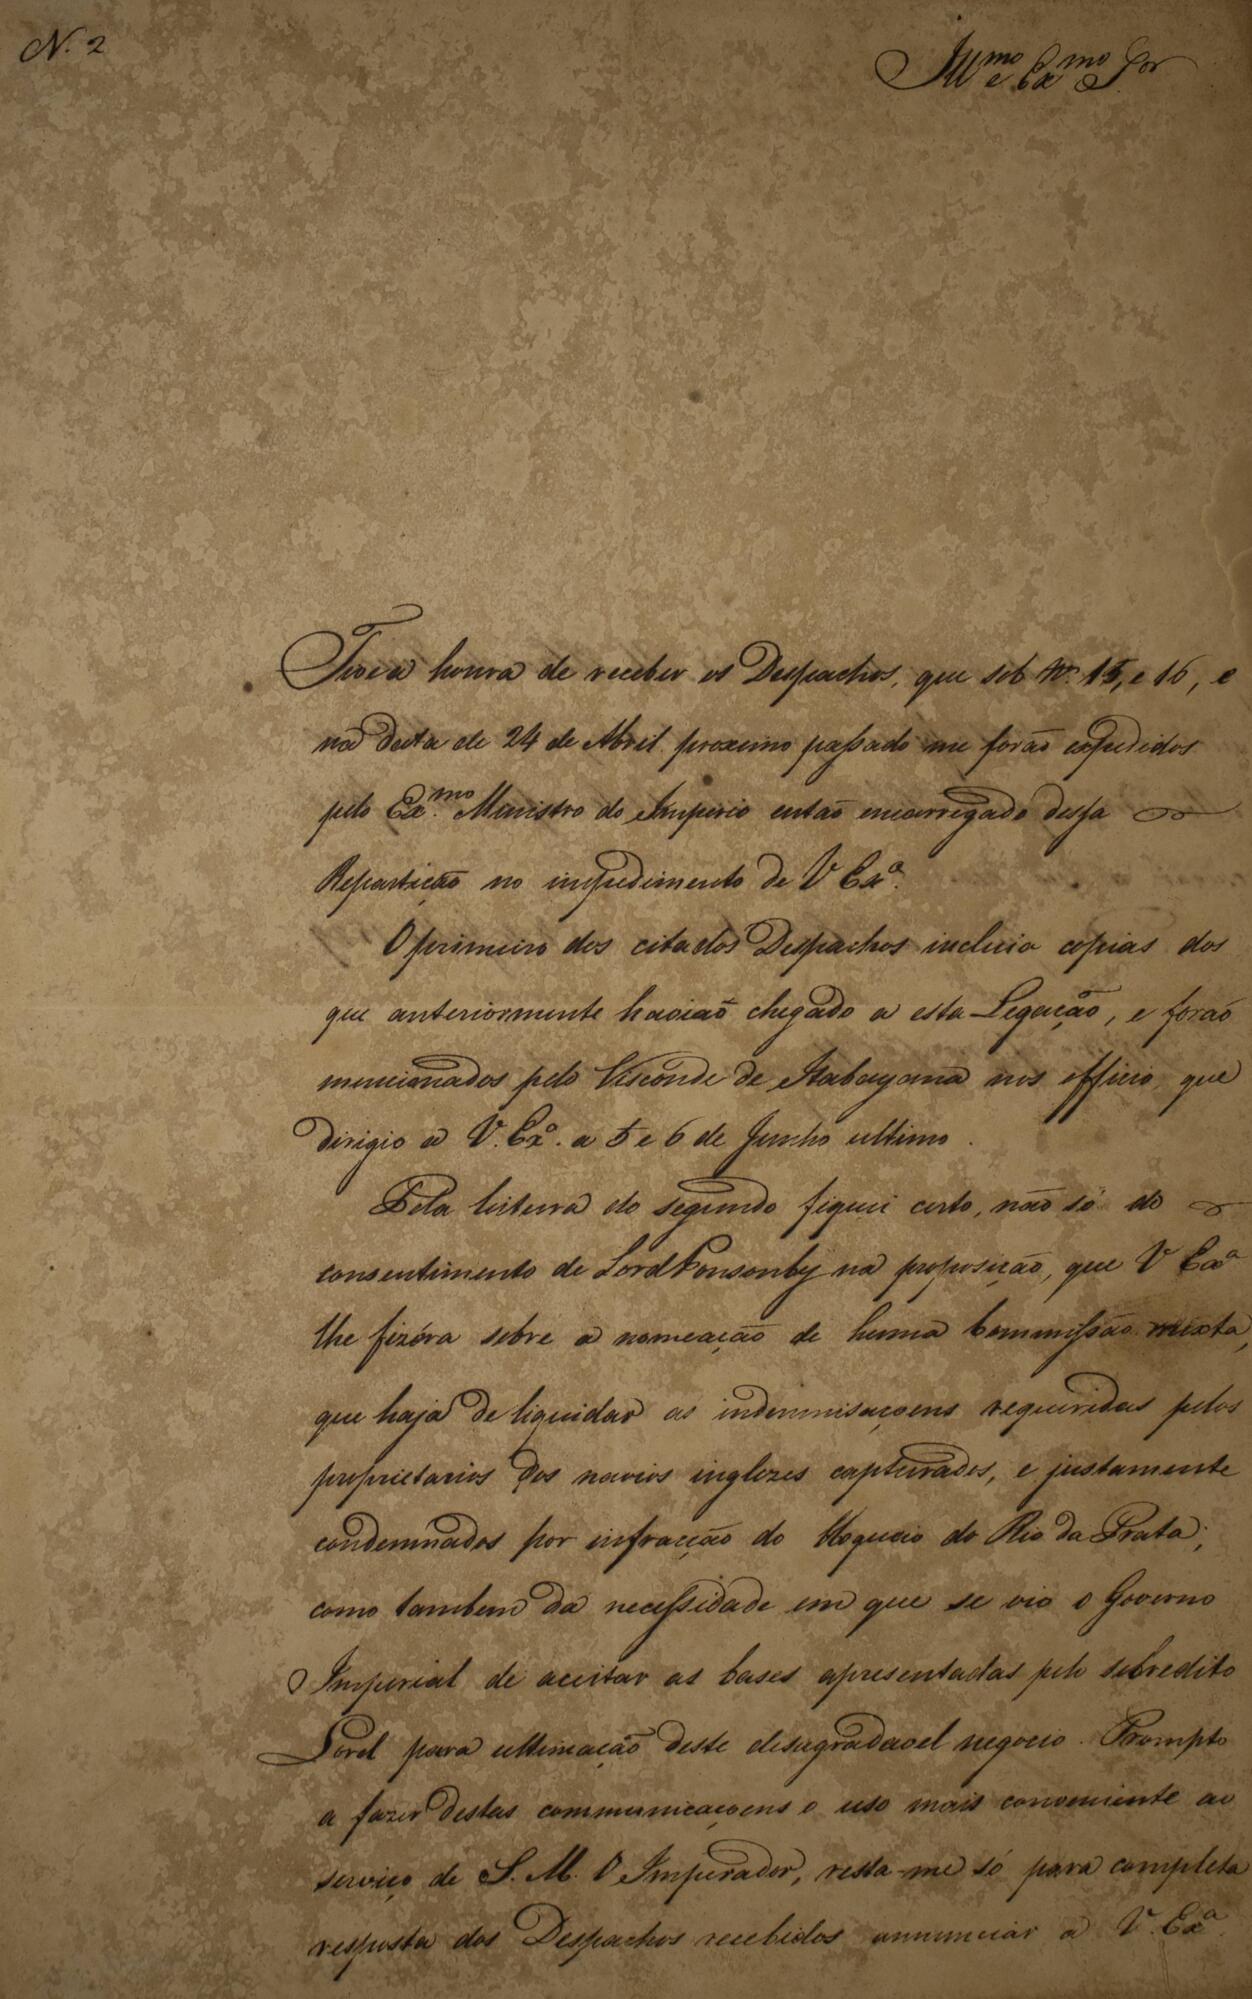 N. 2
Illmo e Exmo Sor
Tive a honra de receber os Despachos, que sob Nos. 15, e 16, e
na data de 24 de Abril proximo passado me forão expedidos
pelo Exmo. Ministro do Imperio então encarregado dessa
Repartição no impedimento de V Exa.
O primeiro dos citados Despachos incluia copias dos
que anteriormente havião chegado a esta Legação, e forão
mencionados pelo Visconde de Itabayana nos officio, que
dirigio a V. Exa. a 5 e 6 de Junho ultimo.
Pela leitura do segundo fiquei certo, não só do
consentimento de Lord Ponsonby na proposição, que V Exa
lhe fizéra sobre a nomeação de huma Commissão mixta,
que haja de liquidar as indemnisaçoens requeridas pelos
proprietarios dos navios inglezes capturados, e justamente
condemnados por infracção do bloqueio do Rio da Prata;
como tambem da necessidade em que se vio o Governo
Imperial de aceitar as bases apresentadas pelo sobredito
Lord para ultimação deste desagradavel negocio. Prompto
a fazer destas communicaçoens o uso mais conveniente ao
serviço de S. M. O Imperador, resta-me só para completa
resposta dos Despachos recebidos annunciar a V. Exa.